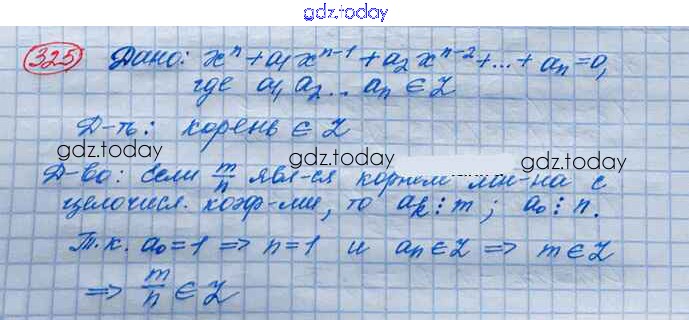 gdz.today
325 Дано: xⁿ + a₁xⁿ⁻¹ + a₂xⁿ⁻² + ... + aₙ = 0,
где a₁, a₂ .. aₙ ∈ Z
Д-ть: корень ∈ Z
gdz.today gdz.today
Д-во: Если m/n явл-ся корнем мн-на с
целочисл. коэф-ми, то aₖ ⋮ m ; a₀ ⋮ n.
Т.к. a₀ = 1 ⇒ n = 1 и aₙ ∈ Z ⇒ m ∈ Z
⇒ m/n ∈ Z
gdz.today